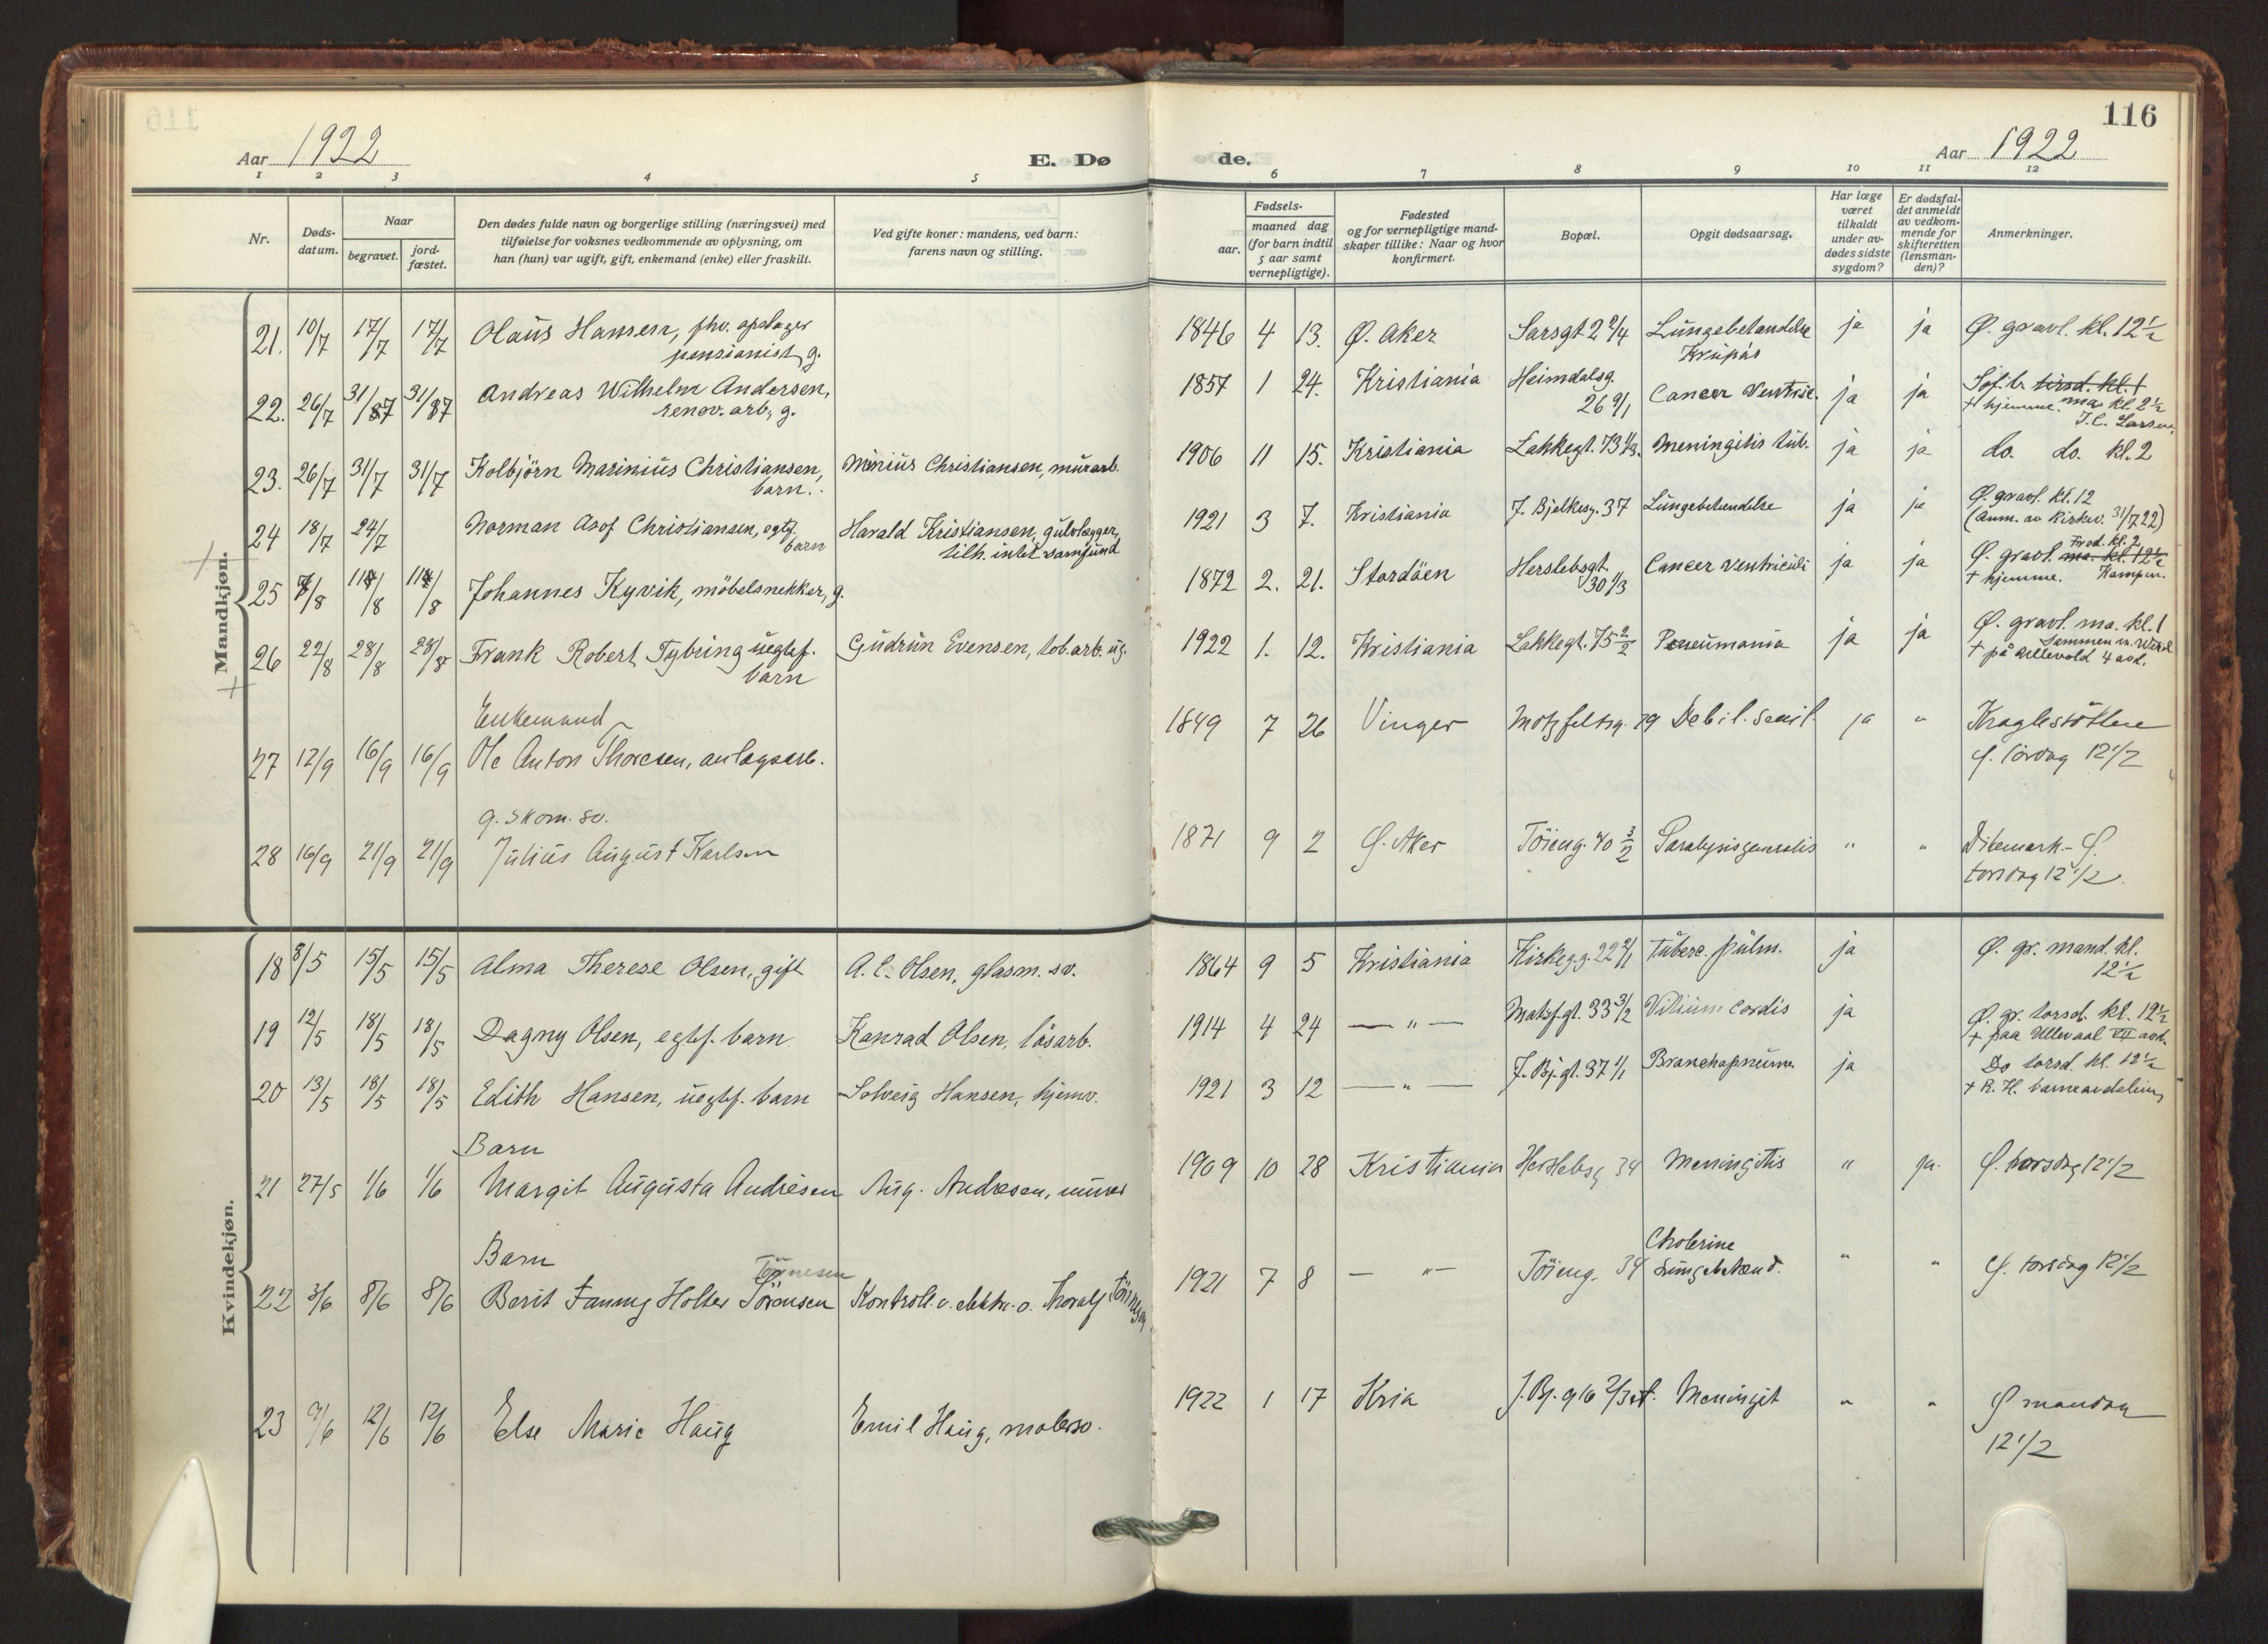 116
Aar 1922
E. Dø
de.
Aar 1922
1 2 3 4 5 6 7 8 9 10 11 12
Nr.
Døds-
datum.
Naar
begravet.
jord-
fæstet.
Den dødes fulde navn og borgerlige stilling (næringsvei) med
tilføielse for voksnes vedkommende av oplysning, om
han (hun) var ugift, gift, enkemand (enke) eller fraskilt.
Ved gifte koner: mandens, ved barn:
farens navn og stilling.
Fødsels-
aar.
maaned dag
(for barn indtil
5 aar samt
vernepligtige).
Fødested
og for vernepligtige mand-
skaper tillike: Naar og hvor
konfirmert.
Bopæl.
Opgit dødsaarsag.
Har læge
været
tilkaldt
under av-
dødes sidste
sygdom?
Er dødsfal-
det anmeldt
av vedkom-
mende for
skifteretten
(lensman-
den)?
Anmerkninger.
Mandkjøn.
21. 10/7 17/7 17/7 Olaus Hansen, fhv. opslager 1846 4 13. Ø. Aker Sarsgt. 2 2/4 Lungebetændelse ja ja Ø. gravl. kl. 12½
pensionist, g. Krupøs
22. 26/7 31/7 31/7 Andreas Wilhelm Andersen, 1857 1 24. Kristiania Heimdalsg. Cancer Ventric. ja ja Sof.b. tirsd. kl. 1
renov. arb, g. 26 9/1 + hjemme. ma kl. 2½
J.C. Larsen
23. 26/7 31/7 31/7 Kolbjörn Marinius Christiansen, Minius Christiansen, murarb. 1906 11 15. Kristiania Lakkegt. 73 Meningitis tub. ja ja do. do. kl. 2
barn.
24 18/7 24/7 Norman Asof Christiansen, egtf. Harald Kristiansen, gulvlægger, 1921 3 7. Kristiania J. Bjelkesg. 37 Lungebetendelse ja ja Ø. gravl. kl. 12
barn tilh. intet samfund (anm. av Kirkev. 31/7 22)
25 7/8 11/8 11/8 Johannes Kyvik, möbelsnekker, g. 1872 2. 21. Stordöen Herslebsgt. Cancer ventriculi ja ja Ø. gravl. ma. kl. 12½
30 1/3 Fred. kl. 2
+ hjemme. Kampen.
26 22/8 28/8 28/8 Frank Robert Tybring uegtef. Gudrun Evensen, tob.arb. ug. 1922 1. 12. Kristiania Lakkegt. 75 2/2 Pneumonia ja ja Ø. gravl. ma. kl. 1
barn + på Ullevold 4 avd.
Enkemand
27 12/9 16/9 16/9 Ole Anton Thoresen, anlægsarb. 1849 7 26 Vinger Motzfeltsg. 19 Debil. senil. ja " Kraglestötten
Ø. lördag 12 1/2
g. skom. sv.
28 16/9 21/9 21/9 Julius August Karlsen 1871 9 2 Ø. Aker Töieng. 40 3/2 Paralysis generalis " " Dikemark - Ø.
torsdag 12 1/2.
Kvindekjøn.
18 8/5 15/5 15/5 Alma Therese Olsen, gift A. C. Olsen, glasm. sv. 1864 9 5 Kristiania Kirkeg.g. 22 2/1 tuberc. pulm. ja Ø. gr. mand. kl.
12½
19 12/5 18/5 18/5 Dagny Olsen, egtef. barn. Konrad Olsen, lösarb. 1914 4 24 — " — Motzf.gt. 33 3/2 Vitium cordis ja Ø. gr. torsd. kl. 12½
+ paa Ullevaal VII avd.
20 13/5 18/5 18/5 Edith Hansen, uegtef. barn Solveig Hansen, hjemv. 1921 3 12 — " — J. Bj. gt. 37 1/1 Bronchopneum. ja Do torsd. kl. 12½
+ R. H. barneavdeling
Barn
21 27/5 1/6 1/6 Margit Augusta Andresen Aug. Andresen, murer 1909 10 28 Kristiania Herslebsg 34 Meningitis " ja. Ø. torsdag 12 1/2
Barn Tönnesen Cholerine
22 3/6 8/6 8/6 Berit Fanny Holter Sörensen Kontroll. v. elektr. v. Thoralf Tönnesen 1921 7 8 — " — Töieng. 34 Lungebetænd. " " Ø. torsdag 12 1/2
23 9/6 12/6 12/6 Else Marie Haug Emil Haug, malersv. 1922 1 17 Kria J. Bj. g 16 2/3 Meningit " " Ø mandag
12 1/2